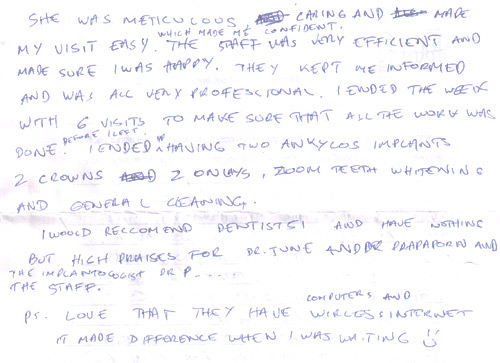 SHE WAS METICULOUS AND CARING AND MADE
WHICH MADE ME CONFIDENT.
MY VISIT EASY. THE STAFF WAS VERY EFFICIENT AND
MADE SURE I WAS HAPPY. THEY KEPT ME INFORMED
AND WAS ALL VERY PROFESSIONAL. I ENDED THE WEEK
WITH 6 VISITS TO MAKE SURE THAT ALL THE WORK WAS
BEFORE I LEFT.
DONE. I ENDED UP HAVING TWO ANKYLOS IMPLANTS
2 CROWNS AND 2 ONLAYS, ZOOM TEETH WHITENING
AND GENERAL CLEANING.
I WOULD RECCOMEND DENTISTS! AND HAVE NOTHING
BUT HIGH PRAISES FOR DR. JUNE AND DR PRAPAPORN AND
THE IMPLANTOLOGIST DR P.....
THE STAFF.
COMPUTERS AND
PS. LOVE THAT THEY HAVE WIRELESS INTERNET
IT MADE DIFFERENCE WHEN I WAS WAITING